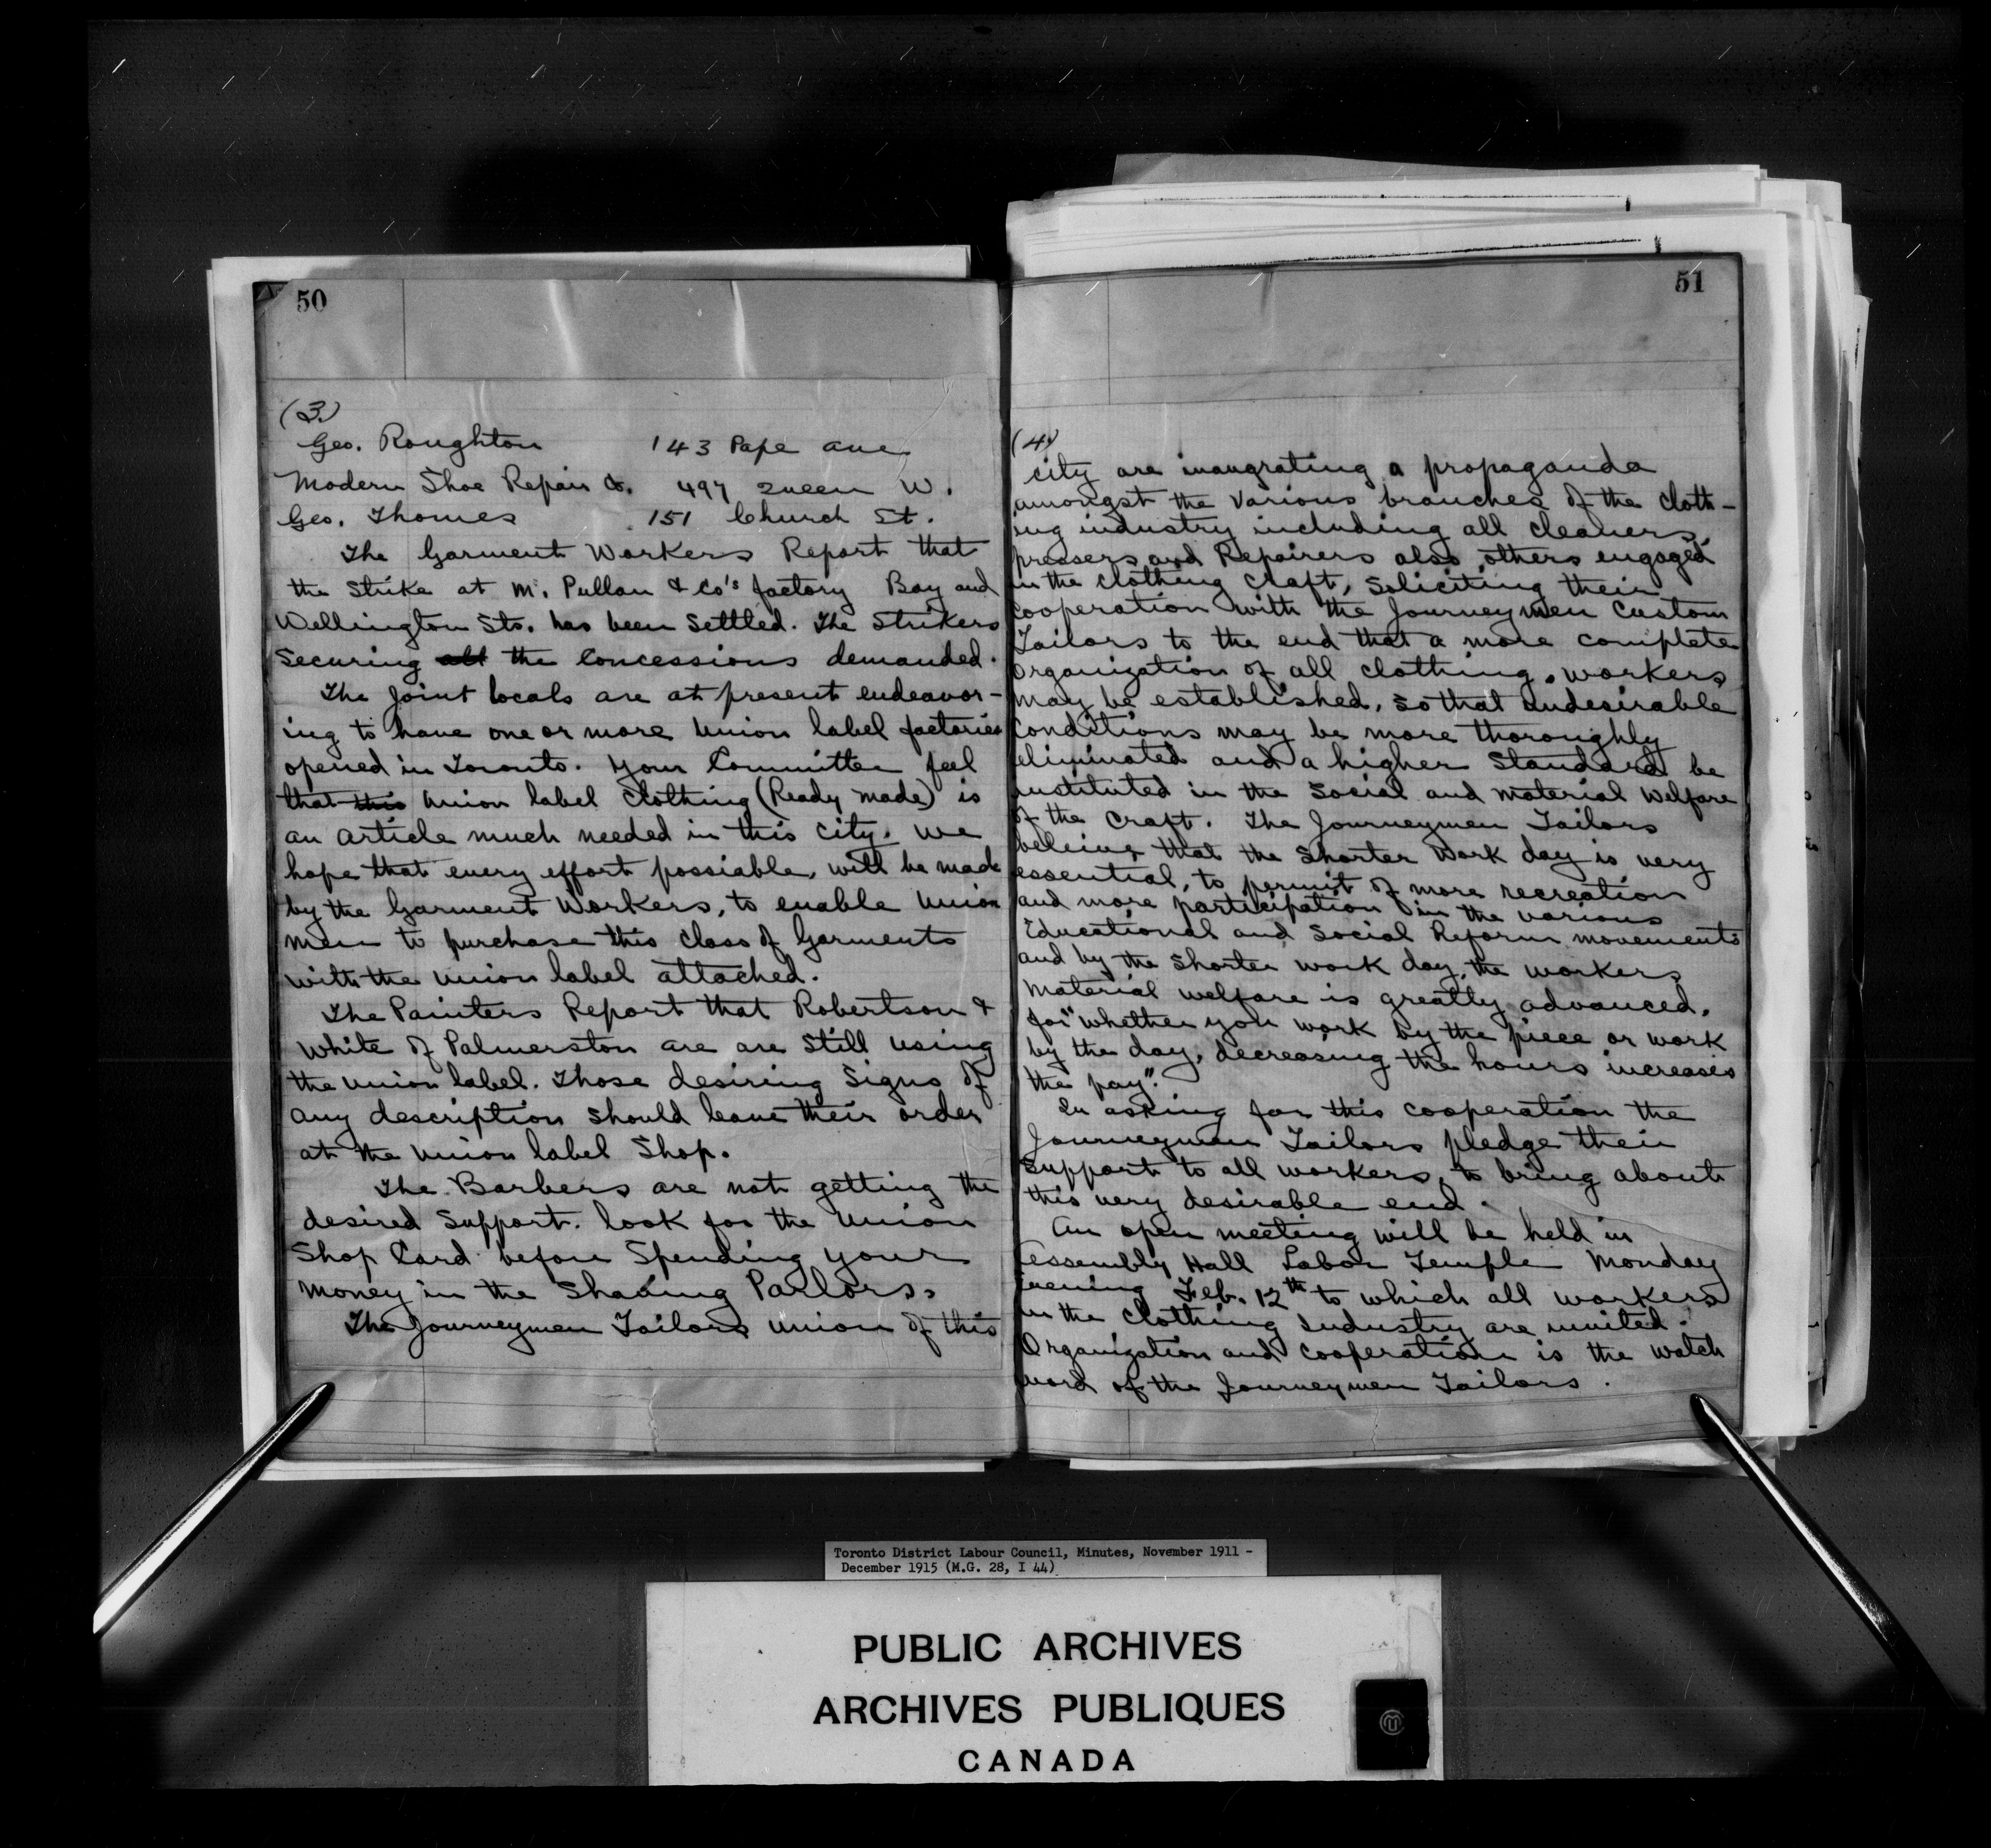 50
(3.)
Geo. Roughton 143 Pape ave.
Modern Shoe Repair Co. 497 Queen W.
Geo. Thomes 151 Church St.
The Garment Workers Report that
the Strike at M. Pullan & Co's factory Bay and
Wellington Sts. has been Settled. The Strikers
Securing all the Concessions demanded.
The Joint locals are at present endeavor-
ing to have one or more Union label factories
opened in Toronto. Your Committee feel
that this Union label Clothing (Ready made) is
an article much needed in this city. We
hope that every effort possiable, will be made
by the Garment Workers, to enable Union
men to purchase this class of Garments
with the Union label attached.
The Painters Report that Robertson &
White of Palmerston are are Still using
the union label. Those desiring Signs of
any description should leave their order
at the Union label Shop.
The Barbers are not getting the
desired Support. look for the Union
Shop Card before Spending your
money in the Shaving Parlors.
The Journeymen Tailors Union of this
51
(4)
city are inaugrating a propaganda
amongst the Various branches of the Cloth-
ing industry including all cleaners,
pressers and Repairers also others engaged
in the Clothing Craft, Soliciting their
cooperation with the Journeymen Custom
Tailors to the end that a more complete
Organization of all clothing workers
may be established, so that undesirable
Conditions may be more thoroughly
eliminated and a higher Standard be
instituted in the Social and material welfare
of the Craft. The Journeymen Tailors
believe that the Shorter Work day is very
essential, to permit of more recreation
and more participation in the various
Educational and Social Reform movements
and by the Shorter work day, the workers
material welfare is greatly advanced.
for "whether you work by the piece or work
by the day, decreasing the hours increases
the pay".
In asking for this cooperation the
Journeymen Tailors pledge their
Support to all workers, to bring about
this very desirable end.
An open meeting will be held in
Assembly Hall Labor Temple Monday
evening Feb. 12th to which all workers
in the Clothing Industry are invited.
Organization and Cooperation is the watch
word of the Journeymen Tailors.
Toronto District Labour Council, Minutes, November 1911 -
December 1915 (M.G. 28, I 44)
PUBLIC ARCHIVES
ARCHIVES PUBLIQUES
CANADA